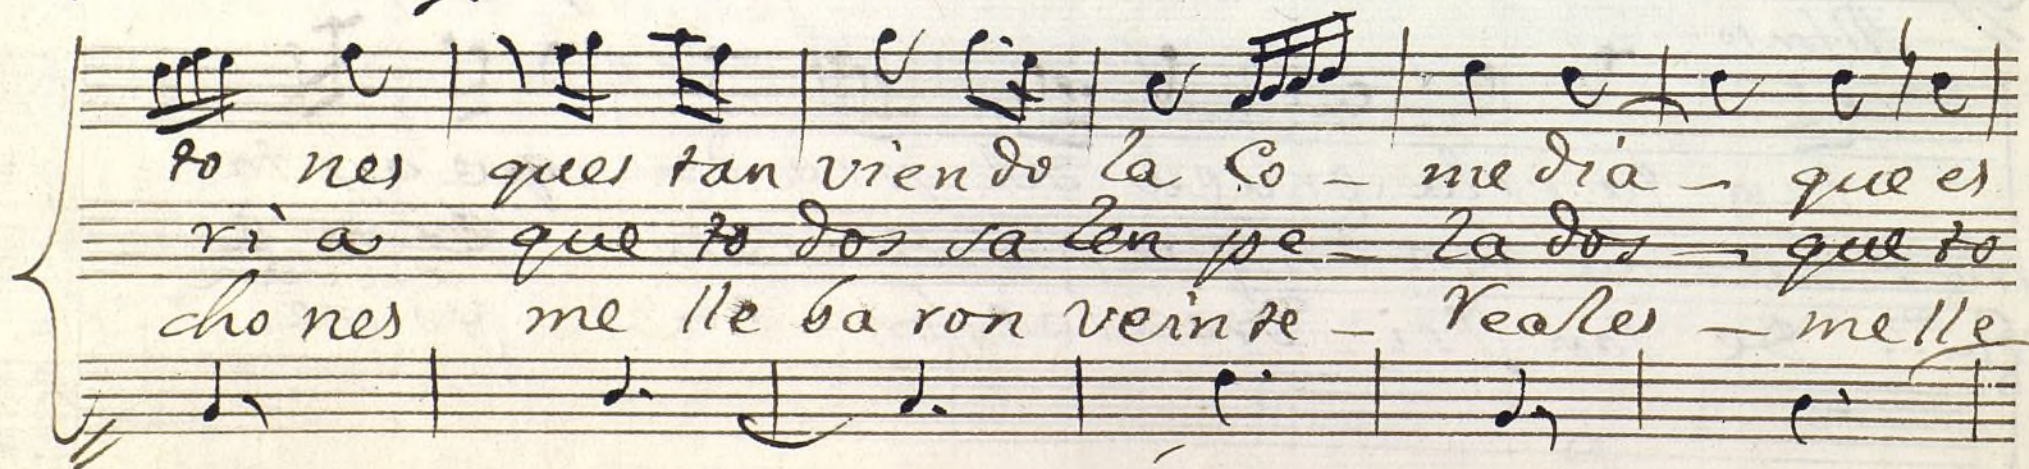 to nes ques tan viendo la Co - media - que es
ri a que to dos salen pe - lados - que to
cho nes me lle ba ron veinte - Reales - me lle